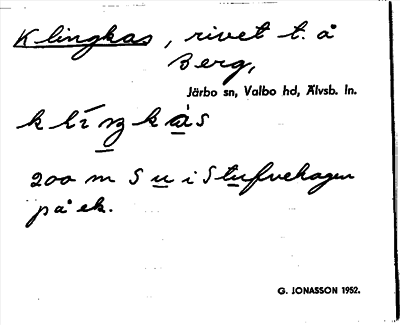 Klingkas, rivet t. å
Berg,
Järbo sn, Valbo hd, Älvsb. ln.
klíŋkàs
200 m S u i Stufvehagen
på ek.
G. JONASSON 1952.